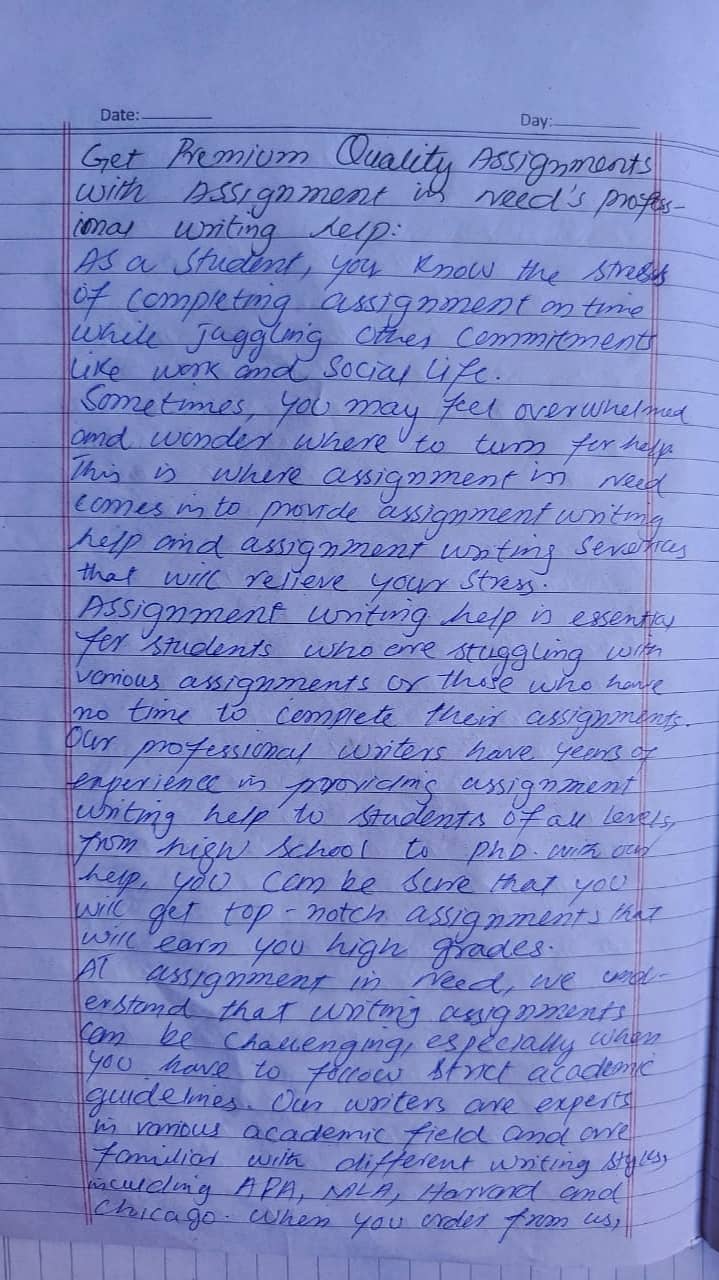 Date:
Day:
Get Premium Quality Assignments
with Assignment in need's profess-
ional writing help:
As a student, you know the stress
of completing assignment on time
while juggling other commitments
like work and social life.
Sometimes, you may feel overwhelmed
and wonder where to turn for help
This is where assignment in need
comes in to provide assignment writing
help and assignment writing services
that will relieve your stress.
Assignment writing help is essential
for students who are stuggling with
various assignments or those who have
no time to complete their assignments.
Our professional writers have years of
experience in providing assignment
writing help to students of all levels,
from high school to phD. with our
help, you can be sure that you
will get top-notch assignments that
will earn you high grades.
At assignment in need, we und-
erstand that writing assignments
can be challenging, especially when
you have to follow strict academic
guidelines. Our writers are experts
in various academic field and are
familiar with different writing styles,
including APA, MLA, Harvard and
Chicago. When you order from us,